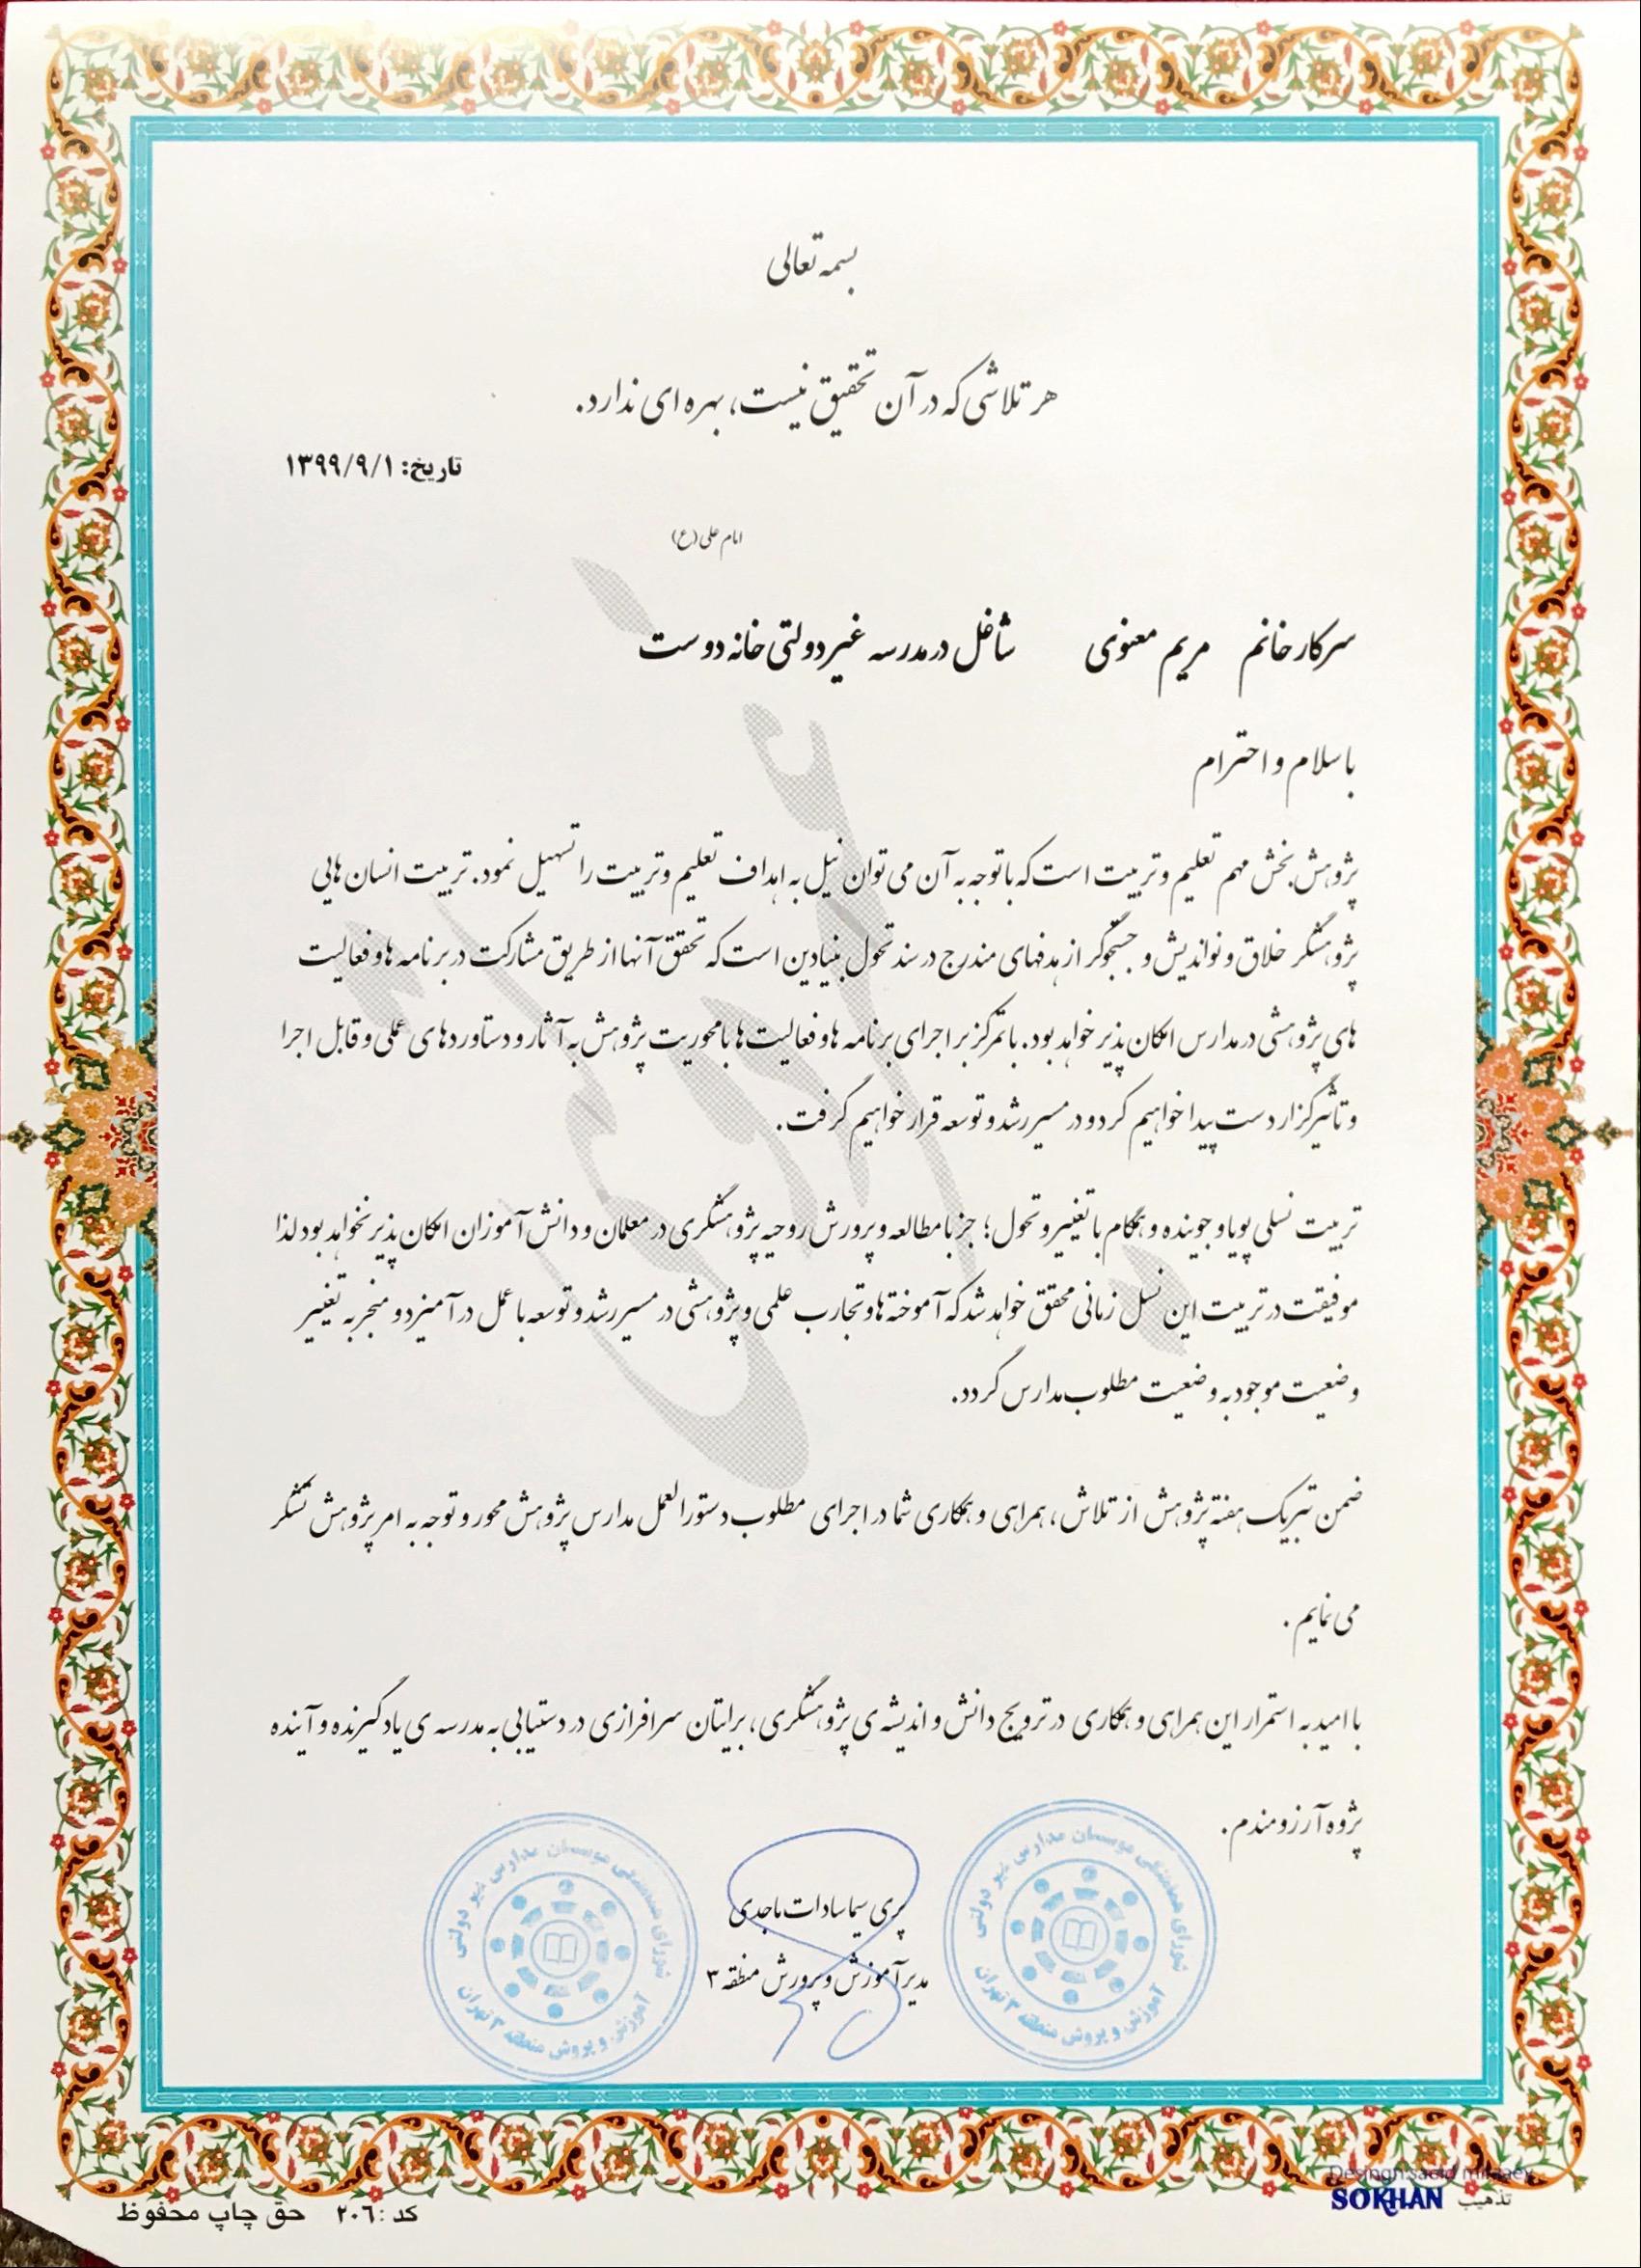 بسمه تعالی
هر تلاشی که در آن تحقیق نیست، بهره ای ندارد.
تاریخ: ۱۳۹۹/۹/۱
امام علی (ع)
سرکار خانم مریم معنوی شاغل در مدرسه غیر دولتی خانه دوست
با سلام و احترام
پژوهش بخش مهم تعلیم و تربیت است که با توجه به آن می توان نیل به اهداف تعلیم و تربیت را تسهیل نمود. تربیت انسان هایی
پژوهشگر خلاق و نواندیش و جستجوگر از هدفهای مندرج در سند تحول بنیادین است که تحقق آنها از طریق مشارکت در برنامه ها و فعالیت
های پژوهشی در مدارس امکان پذیر خواهد بود. با تمرکز بر اجرای برنامه ها و فعالیت ها با محوریت پژوهش به آثار و دستاوردهای عملی و قابل اجرا
و تاثیرگزار دست پیدا خواهیم کرد و در مسیر رشد و توسعه قرار خواهیم گرفت.
تربیت نسلی پویا و جوینده و همگام با تغییر و تحول؛ جز با مطالعه و پرورش روحیه پژوهشگری در معلمان و دانش آموزان امکان پذیر نخواهد بود لذا
موفیقت در تربیت این نسل زمانی محقق خواهد شد که آموخته ها و تجارب علمی و پژوهشی در مسیر رشد و توسعه با عمل در آمیزد و منجر به تغییر
وضعیت موجود به وضعیت مطلوب مدارس گردد.
ضمن تبریک هفته پژوهش از تلاش، همراهی و همکاری شما در اجرای مطلوب دستورالعمل مدارس پژوهش محور و توجه به امر پژوهش تشکر
می نمایم.
با امید به استمرار این همراهی و همکاری در ترویج دانش و اندیشه ی پژوهشگری، برایتان سرافرازی در دستیابی به مدرسه ی یادگیرنده و آینده
پژوه آرزومندم.
پری سیما سادات ماجدی
مدیر آموزش و پرورش منطقه ۳
شورای هماهنگی موسسان مدارس غیر دولتی
آموزش و پروش منطقه ۳ تهران
شورای هماهنگی موسسان مدارس غیر دولتی
آموزش و پروش منطقه ۳ تهران
تذهیب SOKHAN
کد: ۲۰۶ حق چاپ محفوظ